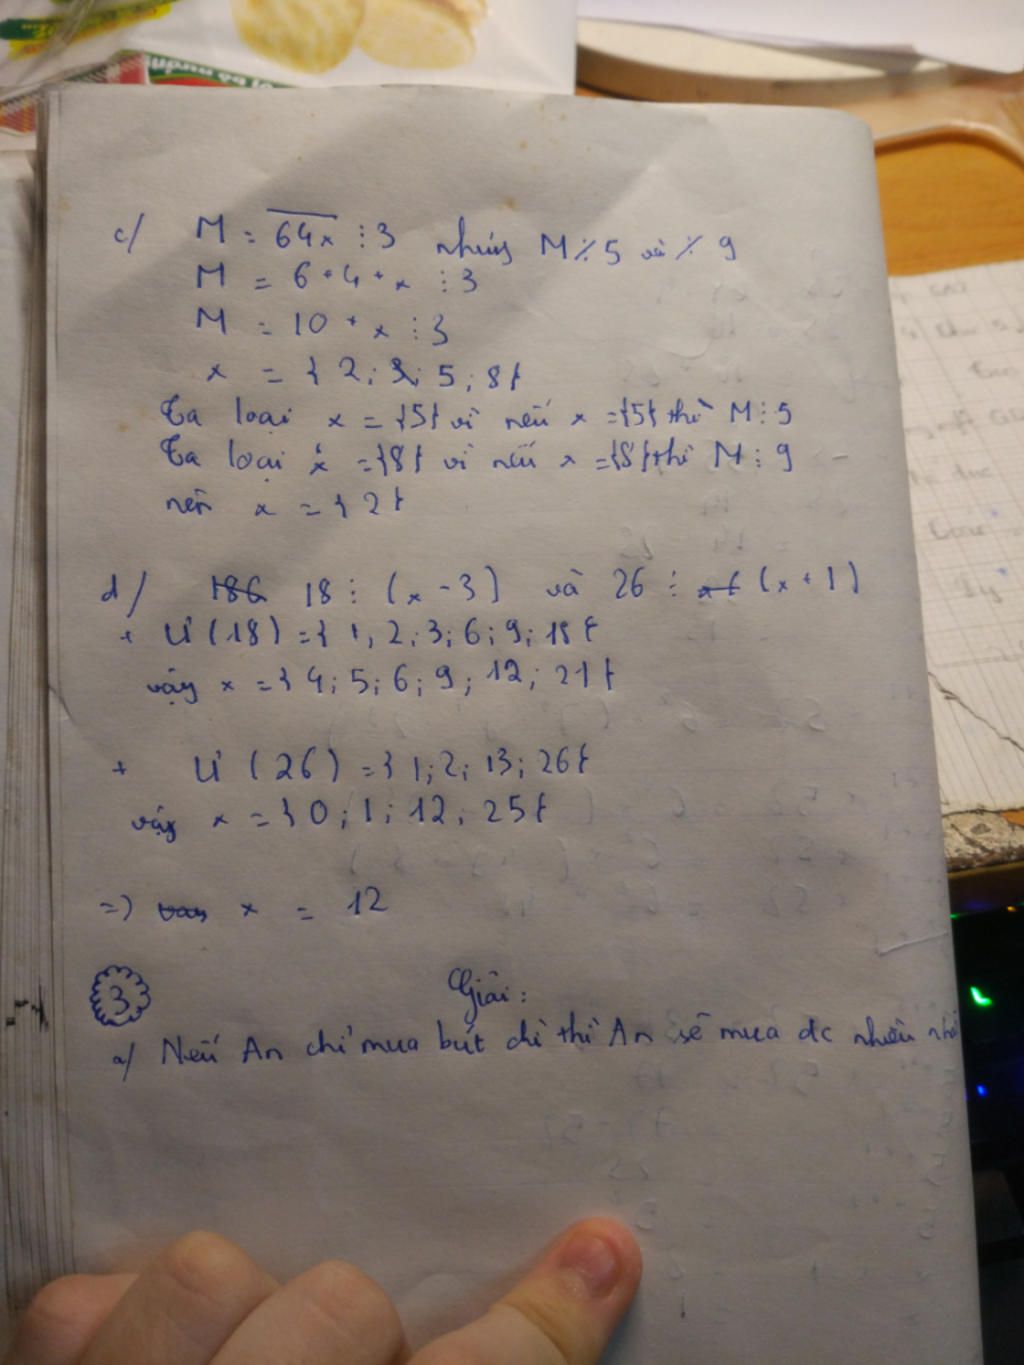 c/ M = 64x ⋮ 3 nhưng M ⋮̸ 5 và ⋮̸ 9
M = 6 + 4 + x ⋮ 3
M = 10 + x ⋮ 3
x = { 2; 5; 8 }
Ta loại x = {5} vì nếu x = {5} thì M ⋮ 5
Ta loại x = {8} vì nếu x = {8} thì M ⋮ 9
nên x = { 2 }
d/ 186 18 ⋮ (x - 3) và 26 ⋮ (x + 1)
+ Ư (18) = { 1, 2; 3; 6; 9; 18 }
vậy x = { 4; 5; 6; 9; 12; 21 }
+ Ư (26) = { 1; 2; 13; 26 }
vậy x = { 0; 1; 12; 25 }
=> vậy x = 12
3 Giải:
a/ Nếu An chỉ mua bút chì thì An sẽ mua dc nhiều